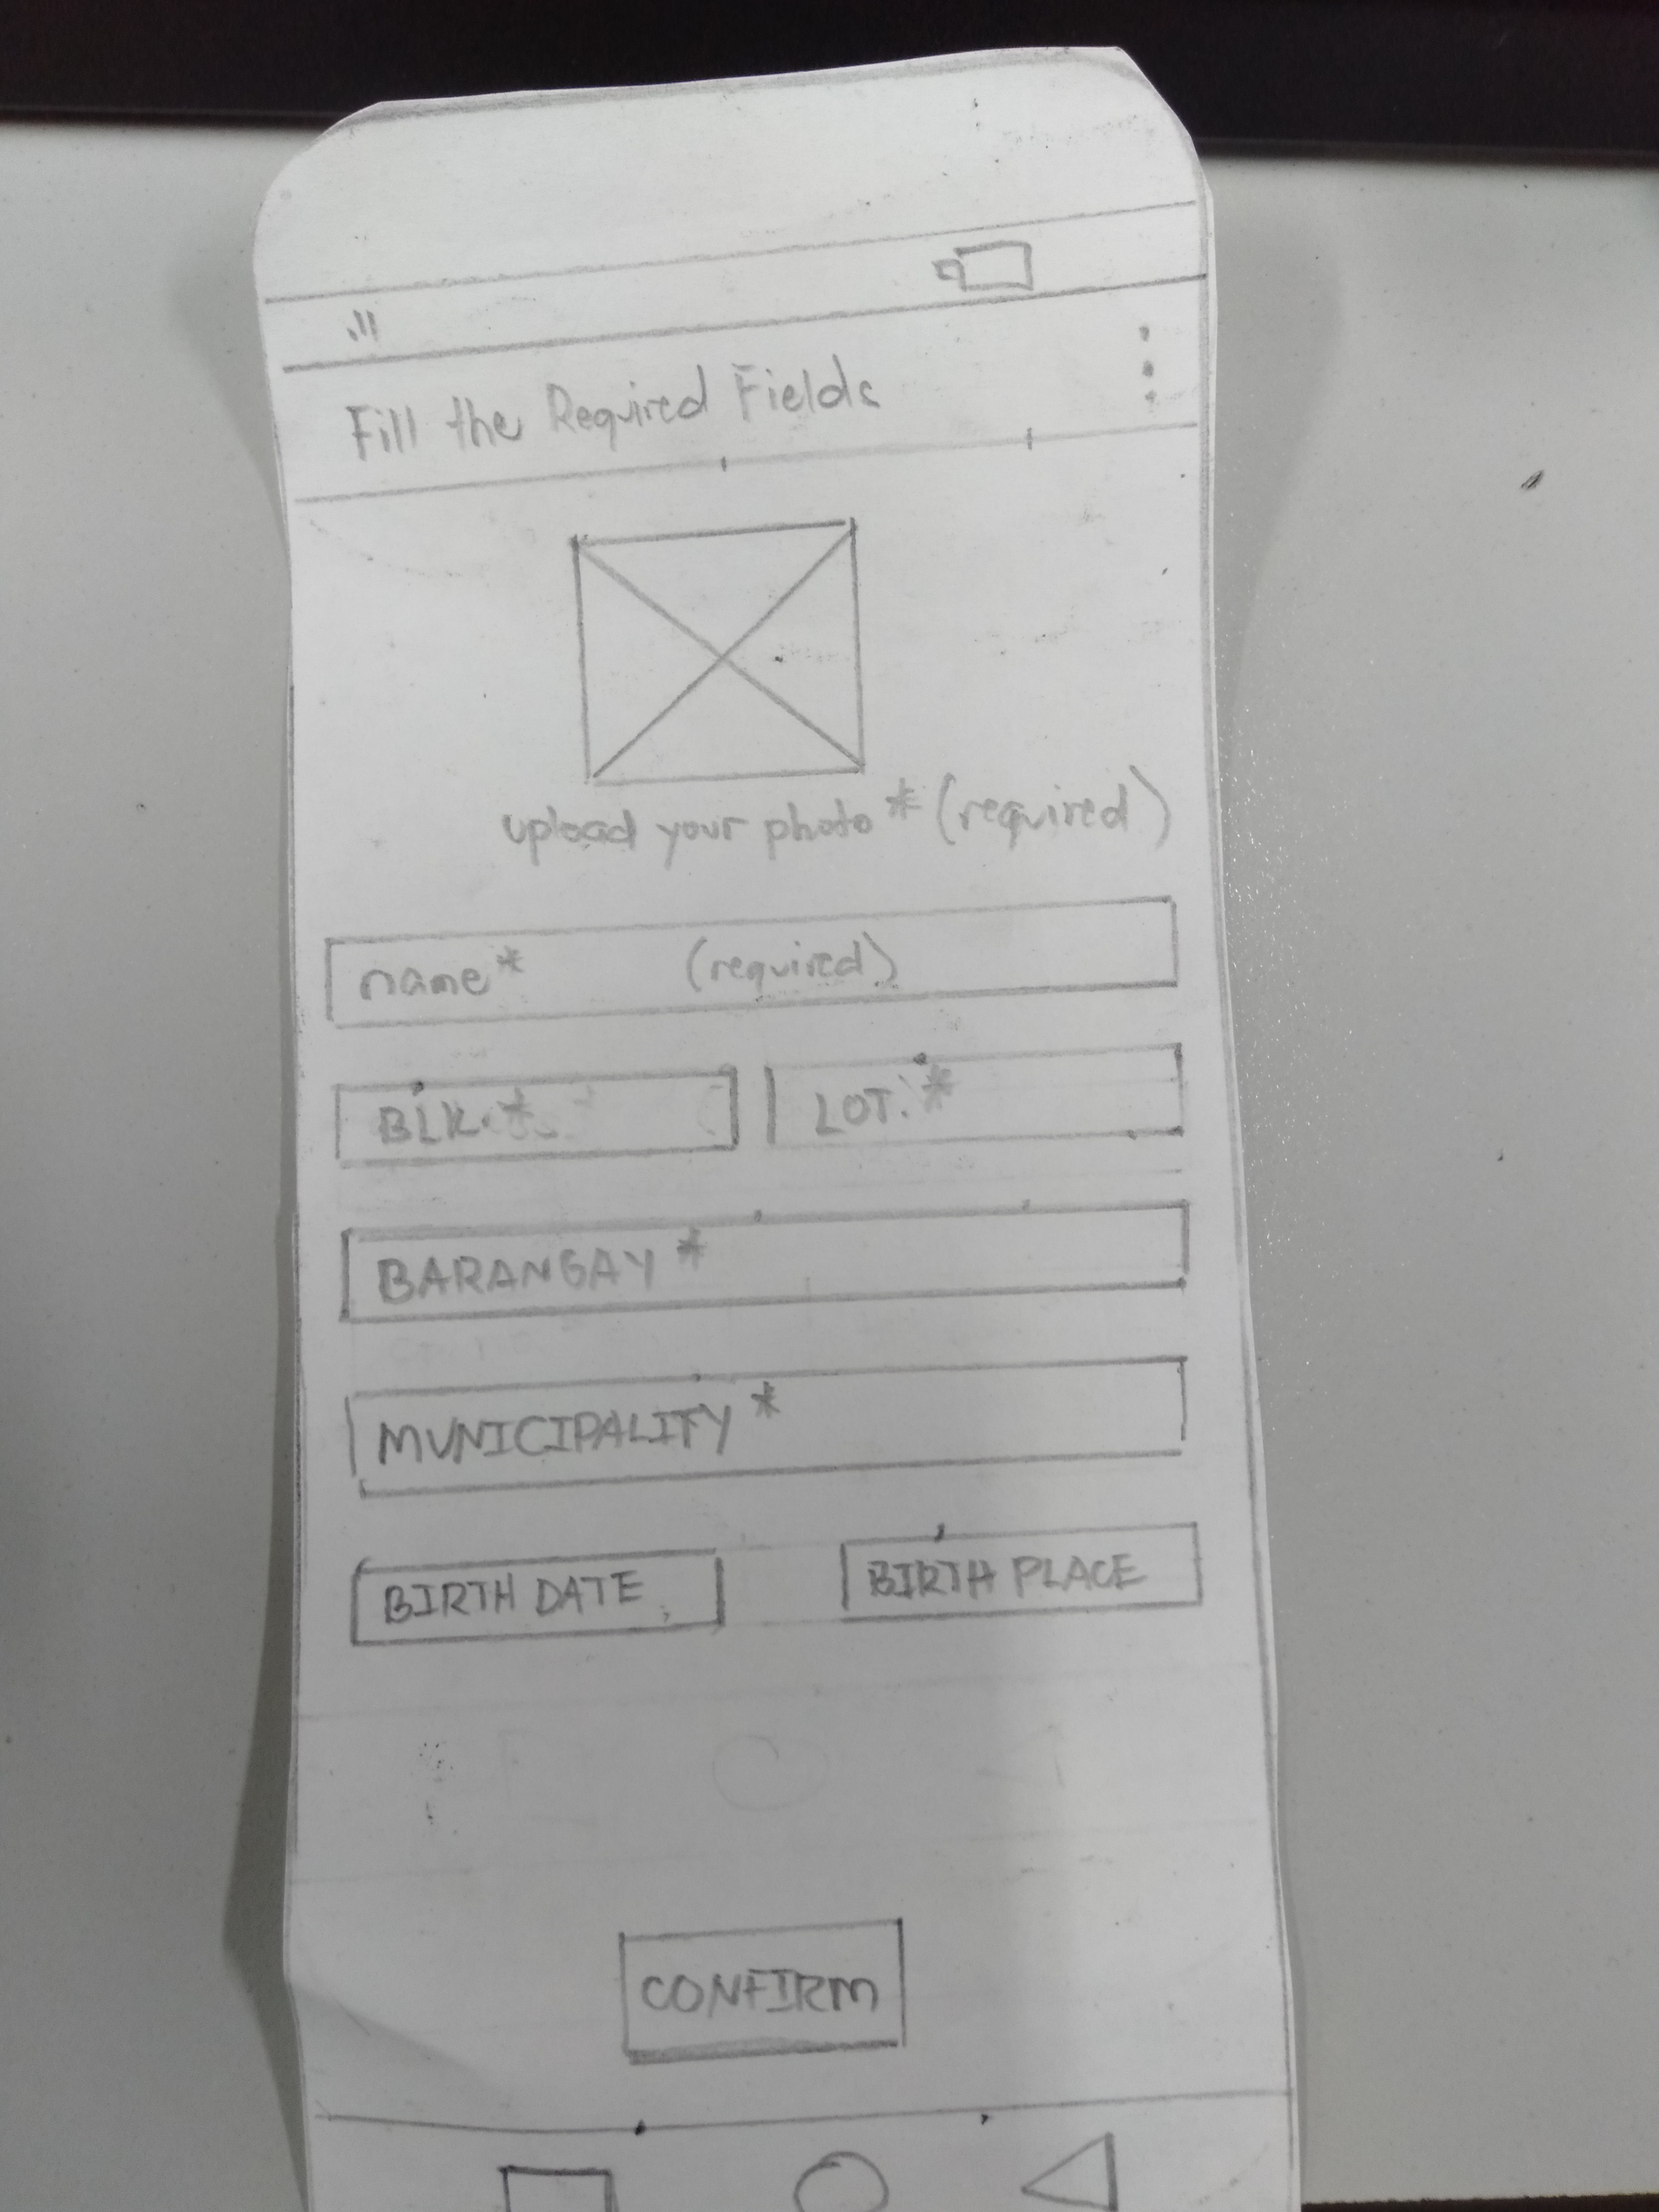 Fill the Required Fields
upload your photo * (required)
name * (required)
BLK. * LOT. *
BARANGAY *
MUNICIPALITY *
BIRTH DATE BIRTH PLACE
CONFIRM